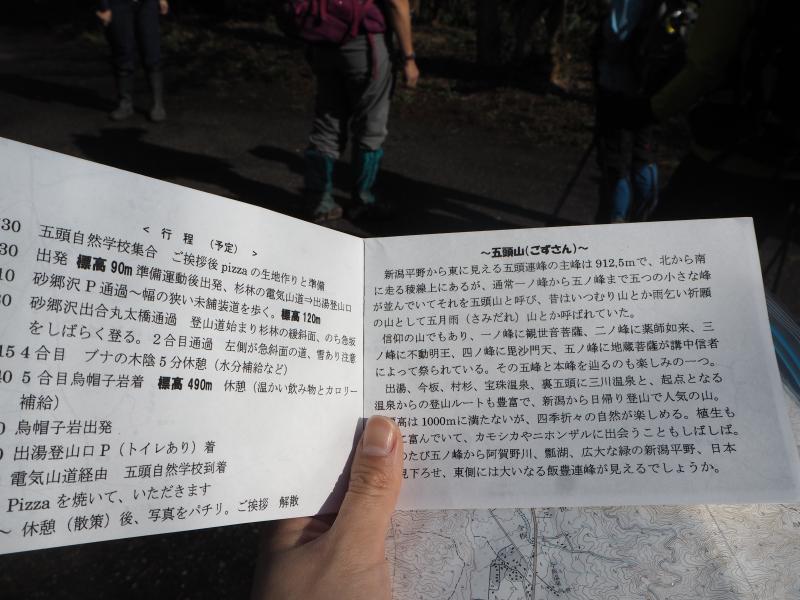 < 行 程 （予定） >
30 五頭自然学校集合 ご挨拶後pizzaの生地作りと準備
30 出発 標高90m準備運動後出発、杉林の電気山道⇒出湯登山口
10 砂郷沢P通過～幅の狭い未舗装道を歩く。標高120m
砂郷沢出合丸太橋通過 登山道始まり杉林の緩斜面、のち急坂
をしばらく登る。２合目通過 左側が急斜面の道、雪あり注意
15 4合目 ブナの木陰5分休憩（水分補給など）
40 5合目烏帽子岩着 標高490m 休憩（温かい飲み物とカロリー
補給）
烏帽子岩出発
出湯登山口P（トイレあり）着
電気山道経由 五頭自然学校到着
Pizzaを焼いて、いただきます
～ 休憩（散策）後、写真をパチリ。ご挨拶 解散
～五頭山(こずさん)～
新潟平野から東に見える五頭連峰の主峰は912,5mで、北から南
に走る稜線上にあるが、通常一ノ峰から五ノ峰まで五つの小さな峰
が並んでいてそれを五頭山と呼び、昔はいつむり山とか雨乞い祈願
の山として五月雨（さみだれ）山とか呼ばれていた。
信仰の山でもあり、一ノ峰に観世音菩薩、二ノ峰に薬師如来、三
ノ峰に不動明王、四ノ峰に毘沙門天、五ノ峰に地蔵菩薩が講中信者
によって祭られている。その五峰と本峰を辿るのも楽しみの一つ。
出湯、今板、村杉、宝珠温泉、裏五頭に三川温泉と、起点となる
温泉からの登山ルートも豊富で、新潟から日帰り登山で人気の山。
標高は1000mに満たないが、四季折々の自然が楽しめる。植生も
に富んでいて、カモシカやニホンザルに出会うこともしばしば。
たび五ノ峰から阿賀野川、瓢湖、広大な緑の新潟平野、日本
見下ろせ、東側には大いなる飯豊連峰が見えるでしょうか。